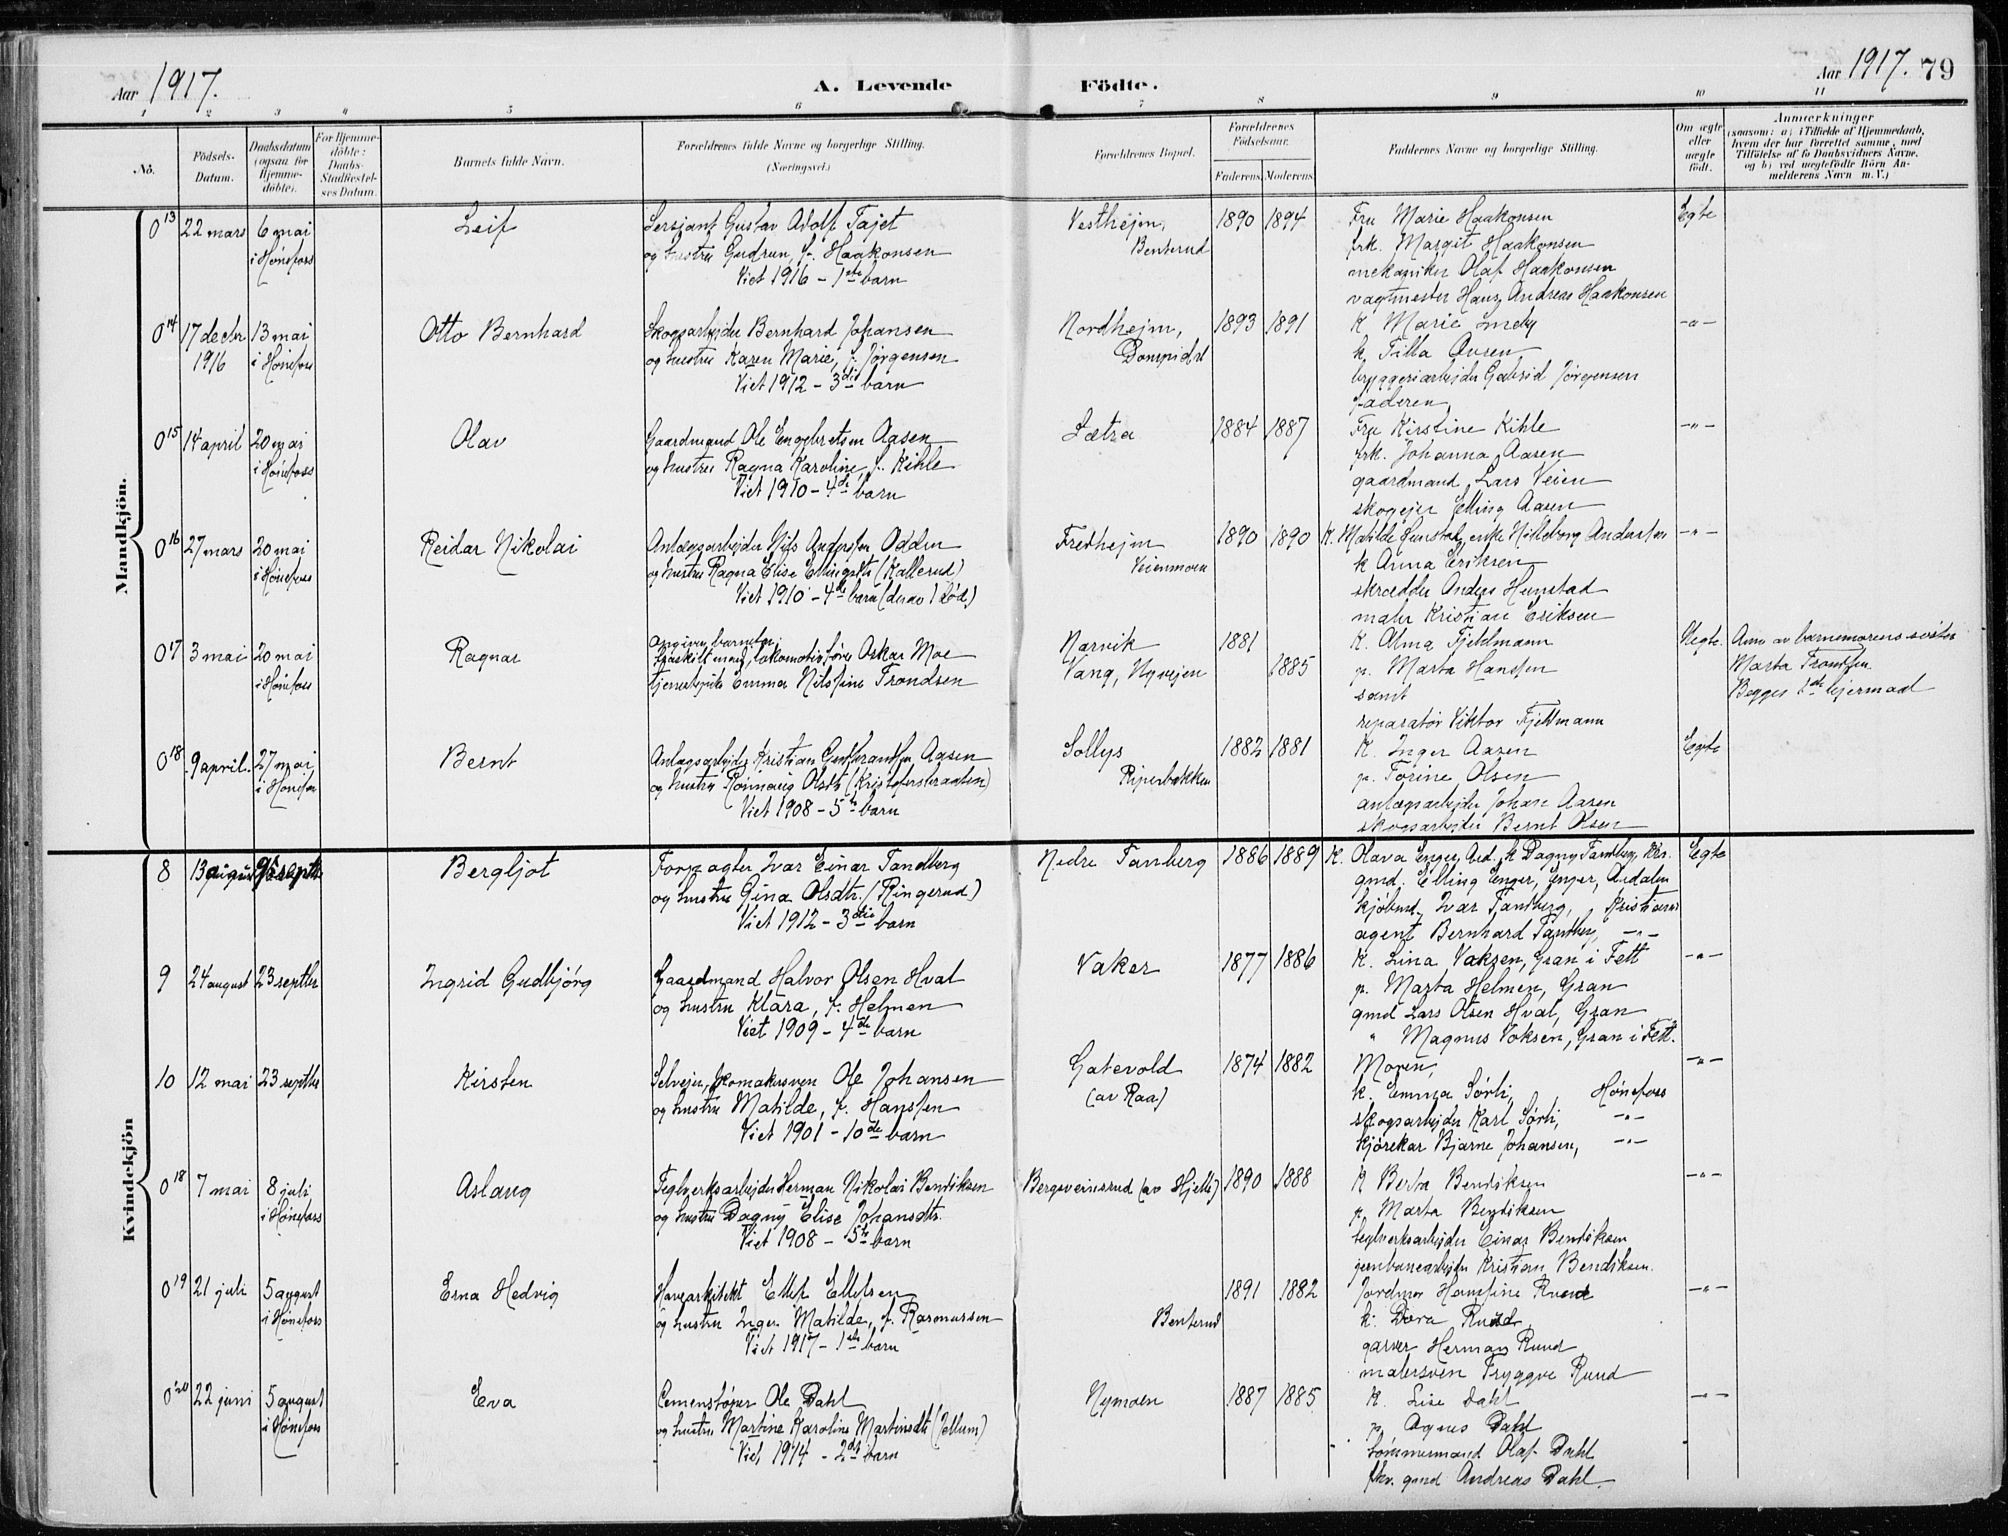 Aar 1917.
A. Levende Födte.
Aar 1917. 79
1 2 3 4 5 6 7 8 9 10 11
No.
Födsels-Datum.
Daabsdatum (ogsaa for Hjemme-döbte).
For Hjemme-döbte: Daabs-Stadfæstel-ses Datum.
Barnets fulde Navn.
Forældrenes fulde Navne og borgerlige Stilling.
(Næringsvei.)
Forældrenes Bopæl.
Forældrenes Födselsaar.
Faderens. Moderens.
Faddernes Navne og borgerlige Stilling.
Om ægte eller uægte födt.
Anmærkninger
(saasom: a) i Tilfælde af Hjemmedaab,
hvem der har forrettet samme, med
Tilföielse af to Daabsvidners Navne,
og b) ved uægtefödte Börn An-
melderens Navn m. V.)
Mandkjön.
0 13 22 mars 6 mai i Hønefoss
Leif
Sersjant Gustav Adolf Tajet
og hustru Gudrun, f. Haakonsen
Viet 1916 - 1ste barn
Vesthejm, Benterud
1890 1894
Fru Marie Haakonsen
frk. Margit Haakonsen
mekaniker Olaf Haakonsen
vagtmester Hans Andreas Haakonsen
Egte
0 14 17 decbr 1916 13 mai i Hønefoss
Otto Bernhard
Skogsarbejder Bernhard Johansen
og hustru Karen Marie, f. Jørgensen
Viet 1912 - 3die barn
Nordhejm,
1893 1891
K. Marie
k. Tilla
bryggeriarbejder Gabriel Jørgensen
faderen
-"-
0 15 14 april 20 mai i Hønefoss
Olav
Gaardmand Ole Engebretsen Aasen
og hustru Ragna Karoline, f. Kihle
Viet 1910 - 4de barn
Sætra
1884 1887
Fru Kirstine Kihle
frk. Johanna Aasen
gaardmand Lars Veien
skogejer Elling Aasen
-"-
0 16 27 mars 20 mai i Hønefoss
Reidar Nikolai
Anlægsarbejder Nils Andersen Odden
og hustru Ragna Elise Ellingsdtr (Kallerud)
Viet 1910 - 4de barn (derav 1 død.)
Fredhejm Veienmoen
1890 1890
K. Matilde Hunstad, enke Andersen
k Anna Eriksen
skrædder Anders Hunstad
maler Kristian Eriksen
-"-
0 17 3 mai 20 mai i Hønefoss
Ragnar
Angiven barnefar:
fraskilt mand, lokomotivfører Oskar Moe
tjenestepike Emma Nilsine Trondsen
Narvik
Vang, Nyvejen
1881
1885
K. Alma Fjeldmann
p. Marta Hansen
samt
reparatør Viktor Fjeldmann
Uegte. Anm av barnemorens søster
Marta Trondsen.
Begges 1ste lejermaal
0 18 9 april. 27 mai i Hønefos
Bernt
Anlægsarbejder Kristian Gudbrandsen Aasen
og hustru Rønnaug Olsdtr
Viet 1908 - 5te barn
Sollys
Riperbakken
1882 1881
K. Inger Aasen
p. Torine Olsen
anlægsarbejder Johan Aasen
skogsarbejder Bernt Olsen
Egte
Kvindekjön
8 13 august 9 septbr
Bergljot
Forpagter Ivar Einar Tandberg
og hustru Gina Olsdtr. (Ringerud)
Viet 1912 - 3die barn
Nedre Tanberg
1886 1889
K. Olava Enger, Aad. k Dagny Tandberg, Kra.
gmd. Elling Enger, Enger, Aadalen
kjøbmd. Ivar Tandberg, Kristiania
agent Bernhard Tandberg, -"-
Egte
9 24 august 23 septbr
Ingrid Gudbjørg
Gaardmand Halvor Olsen Hval
og hustru Klara, f. Helmen
Viet 1909 - 4de barn
Vaker
1877 1886
K. Lina Voksen, Gran i Fett
p. Marta Helmen, Gran
gmd Lars Olsen Hval, Gran
" Magnus Voksen, Gran i Fett.
-"-
10 12 mai 23 septbr
Kirsten
Selvejer, skomakersven Ole Johansen
og hustru Matilde, f. Hansen
Viet 1901 - 10de barn
Gatevold
(av Raa)
1874 1882
Moren,
k. Emma Sørli, Hønefoss
skogsarbejder Karl Sørli, -"-
kjørekar Bjarne Johansen, -"-
-"-
0 18 7 mai 8 juli i Hønefoss
Aslaug
Teglverksarbejder Herman Nikolai Bendiksen
og hustru Dagny Elise Johansdtr.
Viet 1908 - 5te barn
(av Hjelle)
1890 1888
K Berta Bendiksen
p. Marta Bendiksen
teglverksarbejder Einar Bendiksen
jernbanearbejder Kristian Bendiksen.
-"-
0 19 21 juli 5 august i Hønefoss
Erna Hedvig
Havearkitekt Ellef Ellefsen
og hustru Inger Matilde, f. Rasmussen
Viet 1917 - 1ste barn
Benterud
1891 1882
Jordmor Hansine Ruud
k. Dora Ruud
garver Herman Ruud
malersven Tryggve Ruud
-"-
0 20 22 juni 5 august i Hønefoss
Eva
Cementstøper Ole Dahl
og hustru Martine Karoline Martinsdtr (Jellum)
Viet 1914 - 2det barn
Nymoen
1887 1885
K. Lise Dahl
p. Agnes Dahl
tømmermand Olaf Dahl
fhv. gmd Andreas Dahl.
-"-